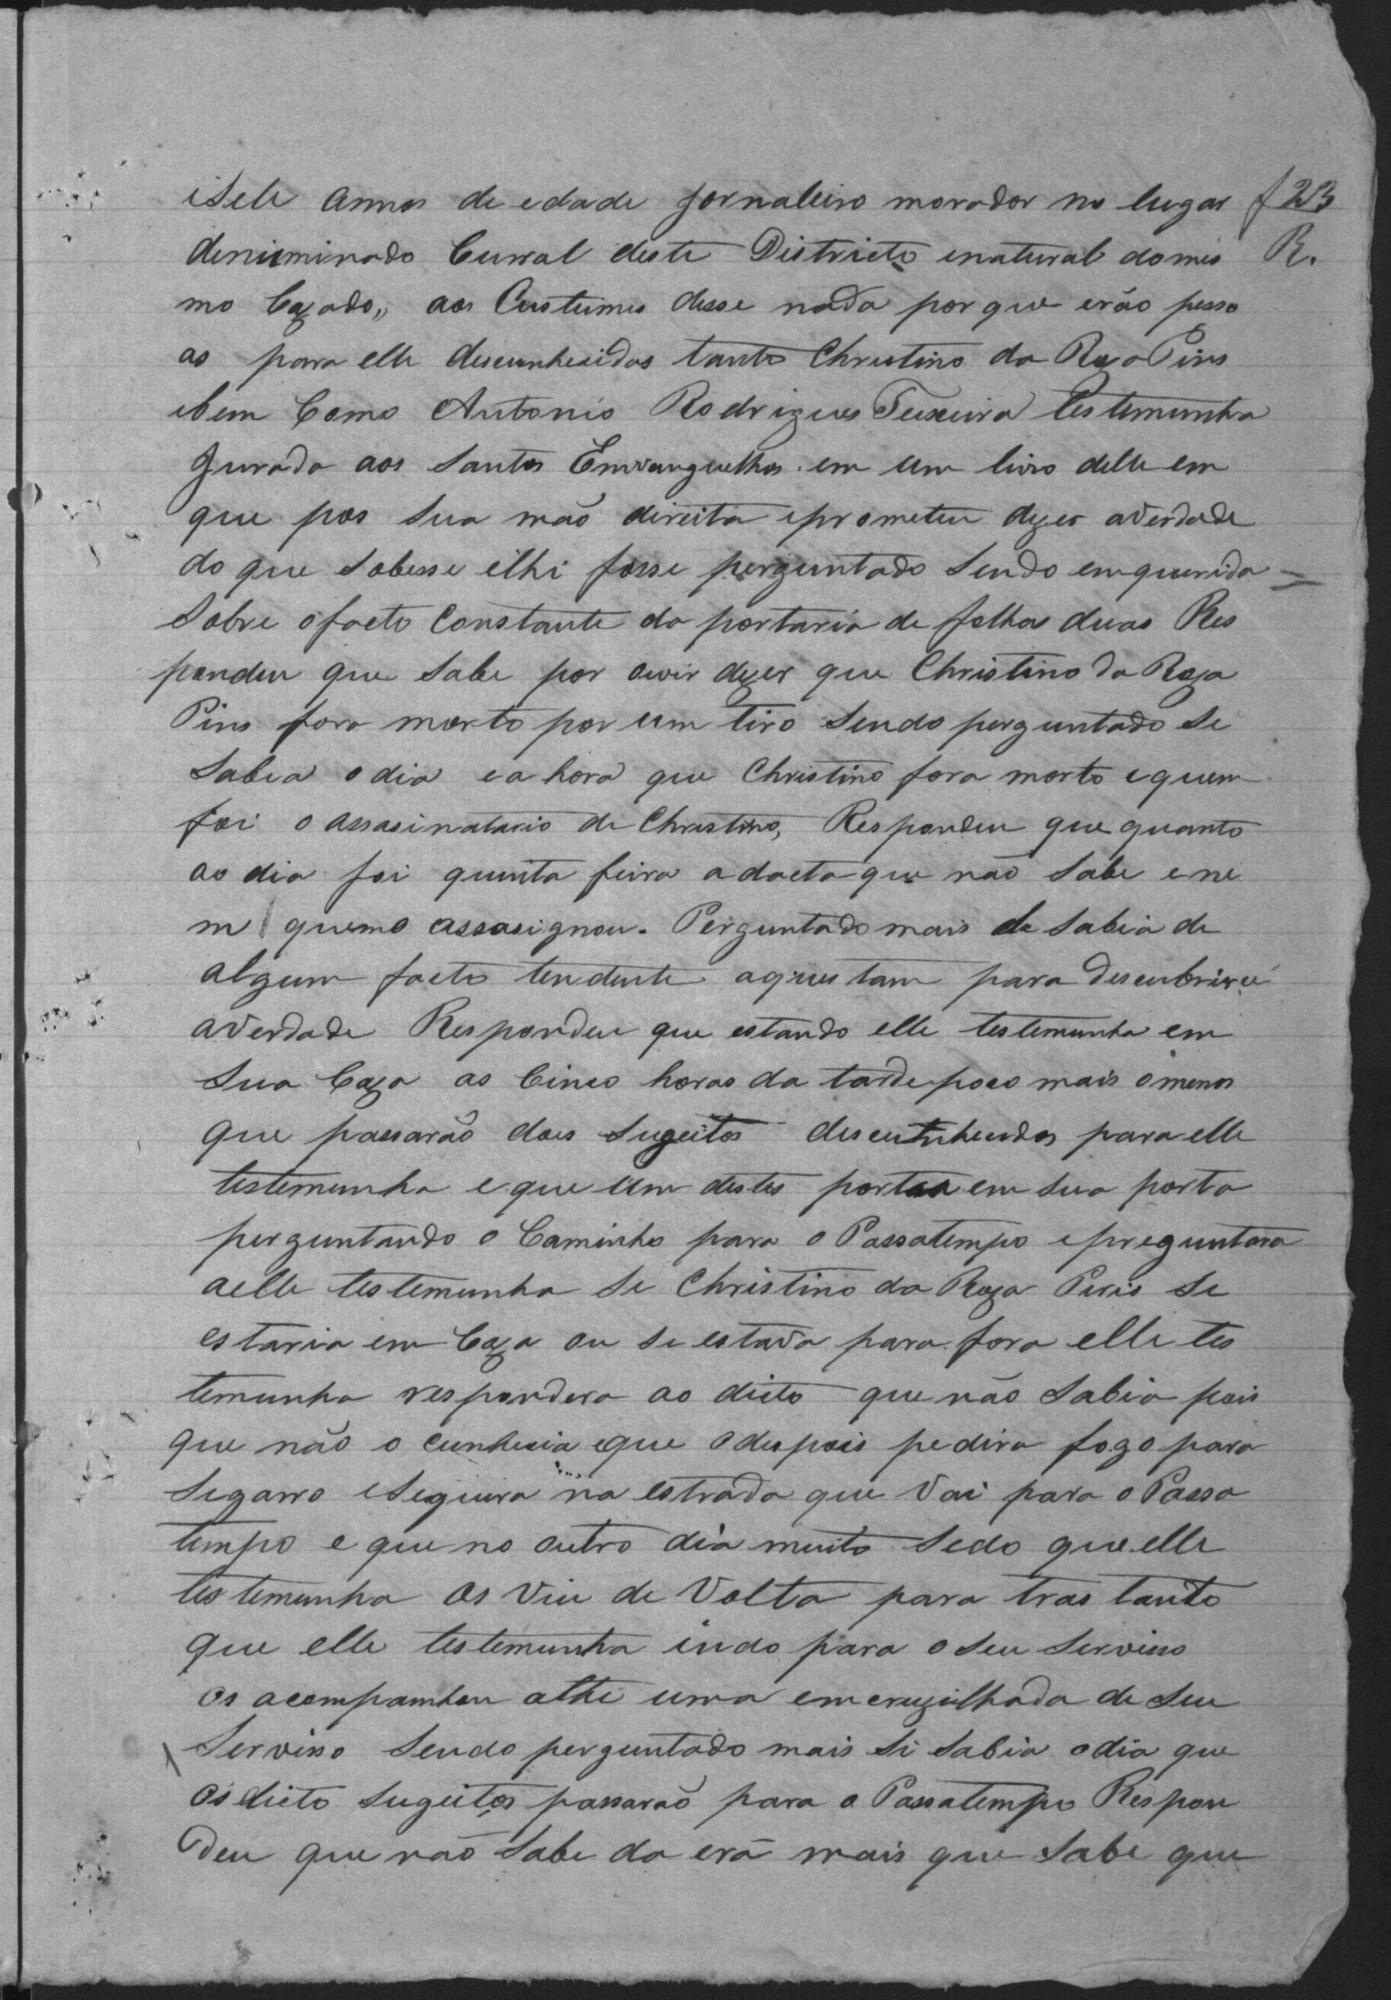 isete annos de edade jornaleiro morador no lugar f 23
denuminado Curral deste Districto enatural domes R.
mo Cazado,, aos Custumes desse nada por que erão pesso
as para elle descunhesidas tanto Christino da Roza Pires
ebem Como Antonio Rodrigues Teixeira testemunha
Jurada aos Santos Emvanguelhos em um livro delle em
que pos sua mão direita eprometeu dizer averdade
do que sobesse elhi fosse perguntado sendo emquerida =
Sobre ofacto constante da portaria de folhas duas Res
pondeu que sabe por ouvir dizer que Christino da Roza
Pires fora morto por um tiro sendo perguntado se
sabia odia ea hora que Christino fora morto equem
foi o assasinatario de Christino, Respondeu que quanto
ao dia foi quinta feira adacta que não sabe ene
m quemo assasignou. Perguntado mais se sabia de
algum facto tendente aquestam para descubrir
averdade Respondeu que estando elle testemunha em
sua Caza as Cinco horas da tarde poco mais omenos
que passarão dois sugeitos descunhesidos para elle
testemunha eque um destes em sua porta
perguntando o Caminho para o Passatempo epreguntara
aelle testemunha se Christino da Roza Piris se
estaria em Caza ou se estava para fora elle tes
temunha respondera ao dicto que não sabia pois
que não o cunhecia eque odepois pedira fogo para
segarro eseguira na estrada que vai para o Passa
tempo e que no outro dia muito sedo que elle
testemunha os viu de volta para tras tanto
que elle testemunha indo para o seu servisso
os acompanhou athe uma emcruzilhada de seu
servisso sendo perguntado mais si sabia odia que
os dicto sugeitos passarão para o Passatempo Respon
deu que não sabe da erã mais que sabe que